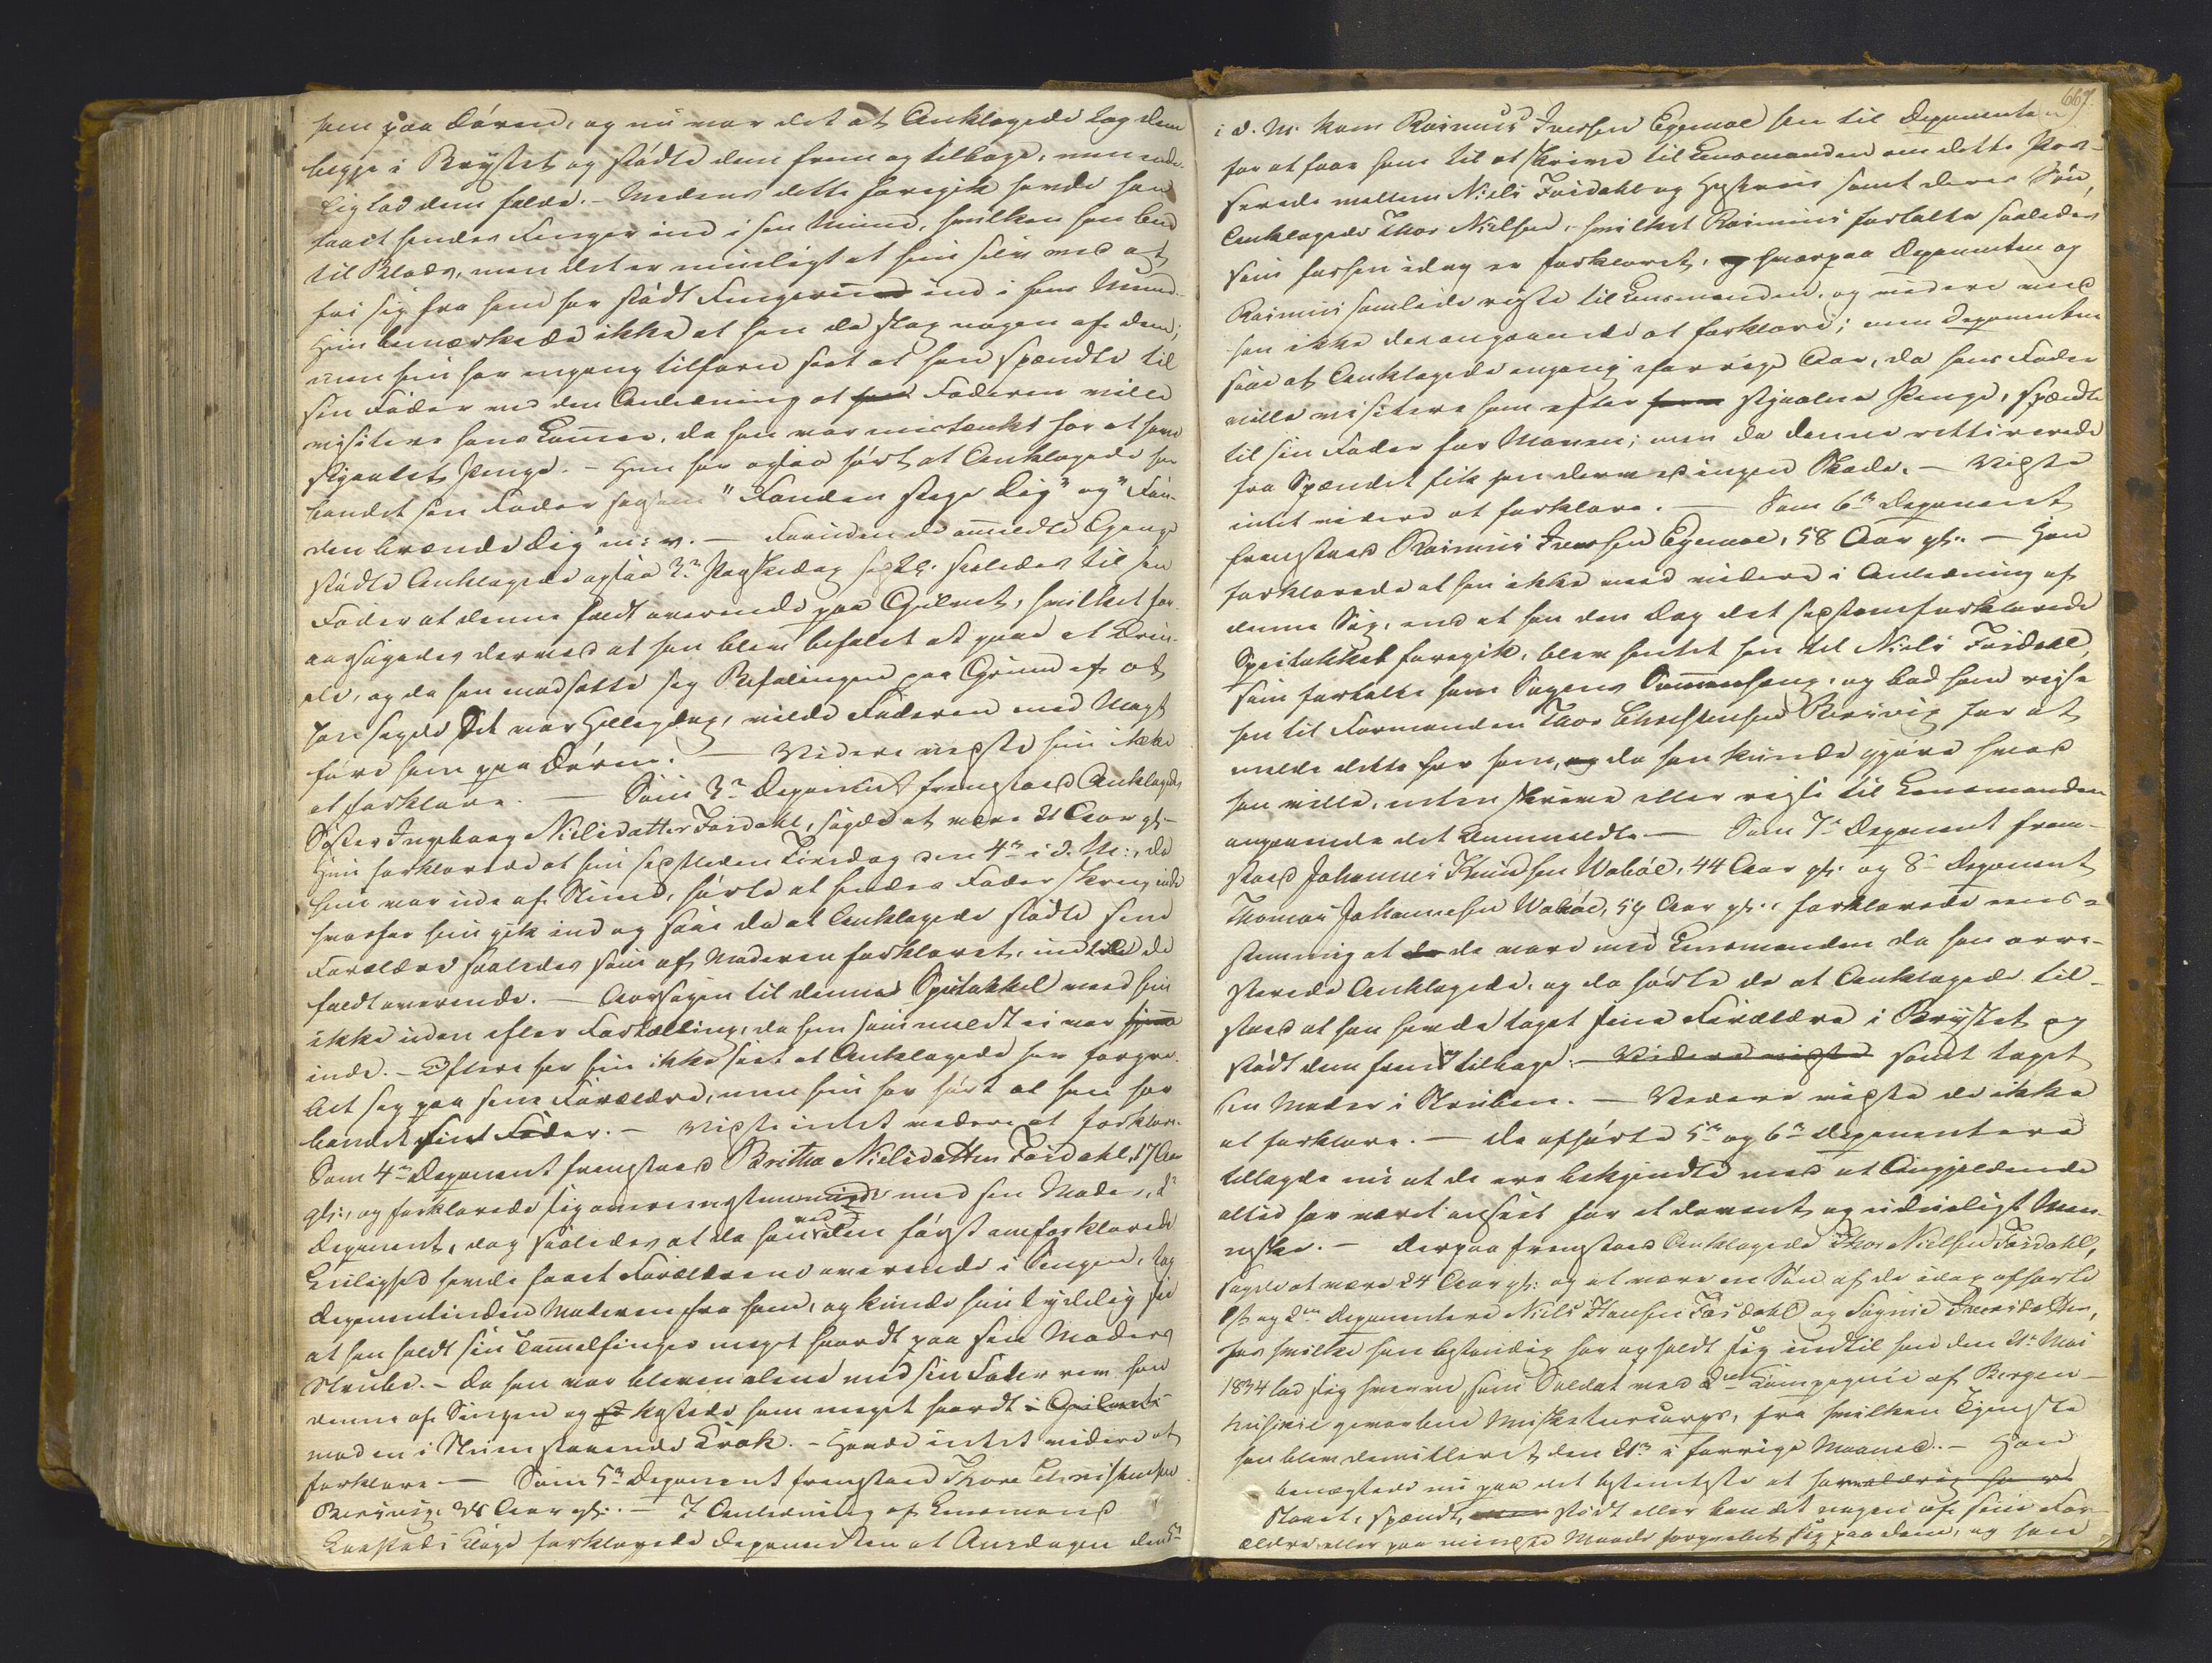 ham paa Døren, og nu var det at Anklagede tog dem
begge i Brystet og stødte dem frem og tilbage, men ende-
lig lod dem falde. – Medens dette foregik havde han
faaet hendes Finger ind i sin Mund, hvilken han beed
til Blods, men det er mueligt at hun selv ved at
fri sig fra ham har stødt Fingeren ind i hans Mund.
Hun bemærkede ikke at han da slog nogen af dem;
men hun har engang tilforn seet at han spændte til
sin Fader ved den Anledning at Faderen vilde
visitere hans Lommer, da han var mistænkt for at have
stjaalet Penge. – Hun har ogsaa hørt at Anklagede har
bandet sin Fader saasom "Fanden stege dig" og "Fan-
den brænde dig" m: v. – Foruden de anmeldte Gange
stødte Anklagede ogsaa 3die Paaskedag sidstl: saaledes til sin
Fader at denne faldt overende paa Gulvet, hvilket for-
aarsagedes derved at han blev befalet at gaae et Æren-
de, og da han modsatte sig Befalingen paa Grund af at
han sagde det var Helligdag, vilde Faderen med Magt
føre ham paa Døren. – Videre vidste hun ikke
at forklare. – Som 3die Deponent fremstod Anklagedes
Søster Ingeborg Nielsdatter Fosdahl, sagde at være 21 Aar gl. –
Hun forklarede at hun sidstleden Tirsdag den 4de i d. M:, da
hun var ude af Stuen, hørte at hendes Fader skreg inde
hvorfor hun gik ind og saae da at Anklagede stødte sine
Forældre saaledes som af Moderen forklaret, indtil de
faldt overende. – Aarsagen til denne Spetakkel veed hun
ikke uden efter Fortælling, da hun som meldt ei var
inde. – Oftere har hun ikke seet at Anklagede har forgre-
bet sig paa sine Forældre, men hun har hørt at han har
bandet sin Fader. – Vidste intet videre at forklare.
Som 4de Deponent fremstod Britha Nielsdatter Fosdahl, 17 Aar
gl:, og forklarede sig overeensstemmende med sin Moder, 2den
Deponent, dog saaledes at da han ved den først omforklarede
Leilighed havde faaet Forældrene overende i Sengen, tog
Deponentinden Moderen fra ham, og kunde hun tydelig see
at han holdt sin Tommelfinger meget haardt paa sin Moders
Strube. – Da han var bleven alene med sin Fader rev han
denne af Sengen og kastede ham meget haardt i Gulvet
mod en i Stuen staaende Krak. – Havde intet videre at
forklare. – Som 5te Deponent fremstod Thore Christensen
Berisvig 38 Aar gl:. – I Anledning af Lensmand
Kaastads Klage forklarede Deponenten at Onsdagen den 5te

667.
i d. M. kom Rasmus Iversen Egenæs hen til Deponenten
for at faae ham til at skrive til Lensmanden om dette Pas-
serede mellem Niels Fosdahl og Hustrue samt deres Søn,
Anklagede Thor Nielsen, hvilket Rasmus fortalte saaledes
som forhen idag er forklaret, hvorpaa Deponenten og
Rasmus samlede reiste til Lensmanden, og videre veed
han ikke desangaaende at forklare; men Deponenten
saae at Anklagede engang i forrige Aar, da hans Fader
vilde visitere ham efter stjaalne Penge, spændte
til sin Fader for Maven; men da denne retirerede
fra Spændet fik han derved ingen Skade. – Vidste
intet videre at forklare. – Som 6te Deponent
fremstod Rasmus Iversen Egenæs, 58 Aar gl:. – Han
forklarede at han ikke veed videre i Anledning af
denne Sag, end at han den Dag det sidstomforklarede
Spetakkel foregik, blev hentet hen til Niels Fosdahl,
som fortalte ham Sagens Sammenhæng, og bad ham reise
hen til Formanden Thor Christensen Berisvig for at
melde dette for ham, da han kunde gjøre hvad
han vilde, enten skrive eller reise til Lensmanden
angaaende det Anmeldte. – Som 7de Deponent frem-
stod Johannes Knudsen Waböe, 44 Aar gl: og 8de Deponent
Thomas Johannesen Waböe, 59 Aar gl:, forklarede eens-
stemmig at de vare med Lensmanden da han arre-
sterede Anklagede, og da hørte de at Anklagede til-
stod at han havde taget sine Forældre i Brystet og
stødt dem frem og tilbage. – Videre vidste samt taget
sin Moder i Struben. – Videre vidste de ikke
at forklare. – De afhørte 5te og 6te Deponentere
tillagde nu at de ere bekjendte med at Angjeldende
altid har været anseet for et dovent og uduelig Men-
neske. – Derpaa fremstod Anklagede Thor Nielsen Fosdahl,
sagde at være 24 Aar gl: og at være en Søn af de idag afhørte
1ste og 2den Deponentere Niels Hansen Fosdahl og Synnie Iversdatter,
hos hvilke han bestandig har opholdt sig indtil han den 21de Mai
1834 lod sig hverve som Soldat ved 2det Kompagnie af Bergen-
husiske gevorbne Musketeercorps, fra hvilken Tjeneste
han blev demitteret den 21de i forrige Maaned. – Han
benægtede nu paa det bestemteste at have
slaaet, spændt, stødt eller bandet nogen af sine For-
ældre, eller paa mindste Maade forgrebet sig paa dem, og han